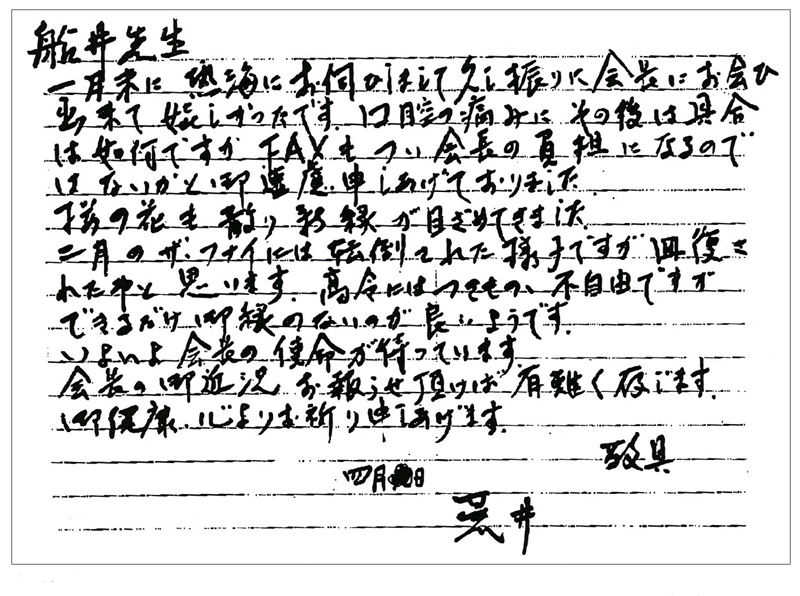 船井先生
一月末に 熱海にお伺ひして久し振りに会長にお会ひ
出来て嬉しかったです 口腔の痛みに その後は具合
は如何ですか FAXもつい会長の負担になるので
はないかと御遠慮申しあげておりました
桜の花も散り新緑が目ざめてきました
二月のザ・フナイには転倒された様子ですが回復さ
れた事と思います。高令にはつきもの、不自由ですが
できるだけ御縁のないのが良いようです。
いよいよ会長の使命が待っています。
会長の御近況お報らせ頂けば有難く存じます。
御健康心よりお祈り申しあげます。
敬具
四月 日
荒井